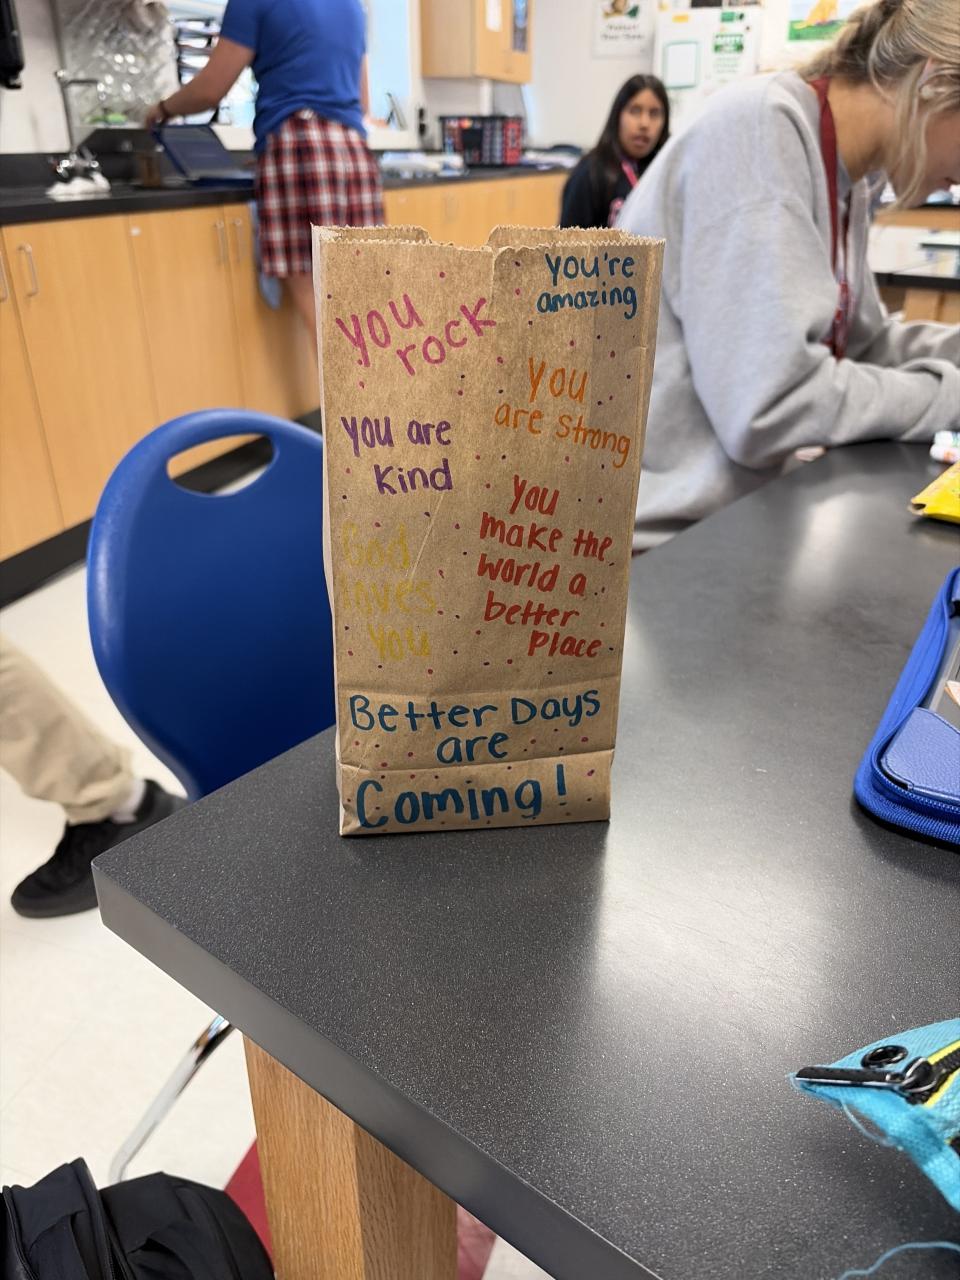 you're
amazing
you
rock
you
are strong
you are
kind
you
make the
world a
better
place
God
loves
you
Better Days
are
Coming!